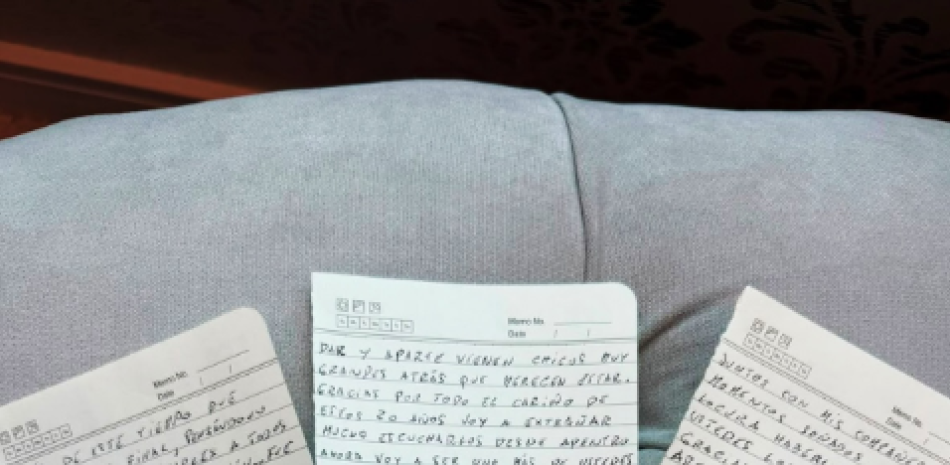 Memo No.
Date / /
DE ESTE TIEMPO QUE
FINAL, PENSANDO
A TODOS
Memo No.
Date / /
DAR Y APARTE VIENEN CHICOS MUY
GRANDES ATRÁS QUE MERECEN ESTAR.
GRACIAS POR TODO EL CARIÑO DE
ESTOS 20 AÑOS VOY A EXTRAÑAR
MUCHO ESCUCHARLOS DESDE ADENTRO
AHORA VOY A SER UNO MÁS DE USTEDES
Memo No.
Date
JUNTOS CON MIS COMPAÑER
MOMENTOS SOÑADOS
LOCURA HABERL
USTEDES LO
GRACI